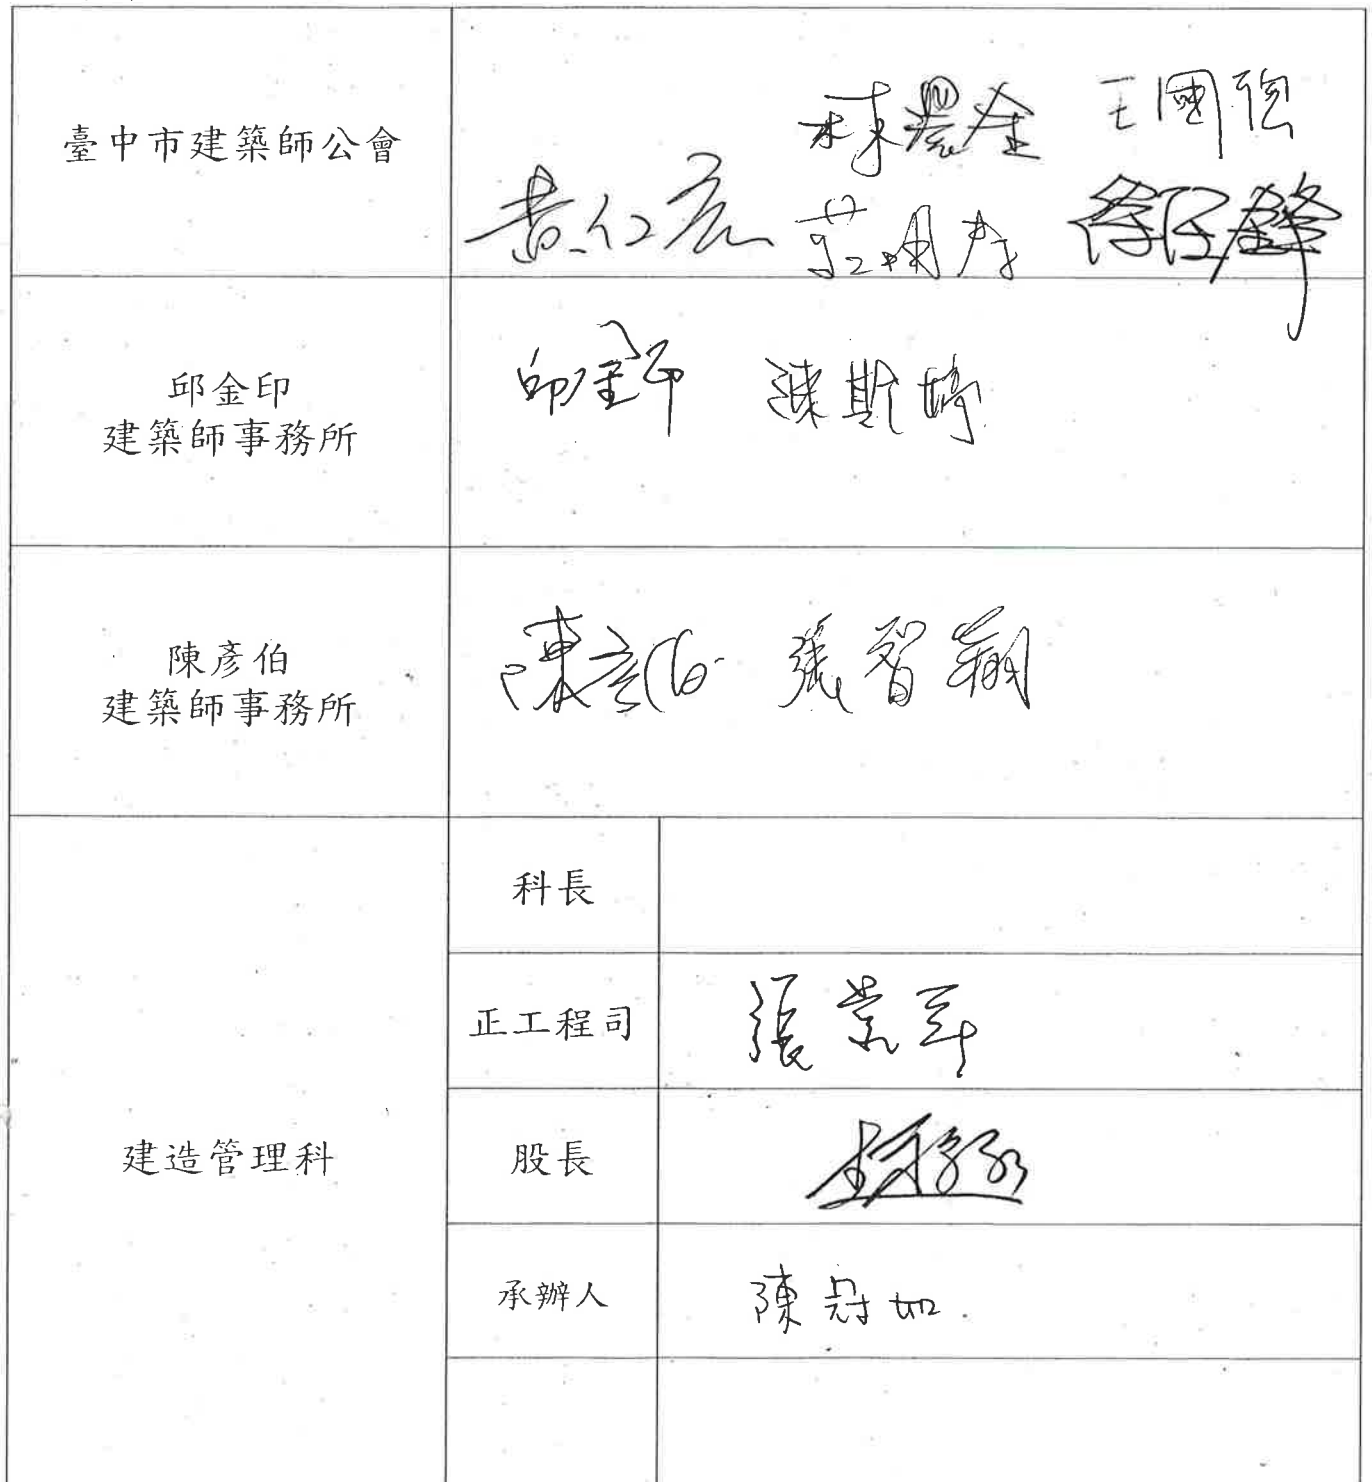 臺中市建築師公會
林農金 王國強
黃仁宏
邱金印
建築師事務所
邱金印 陳斯婷
陳彥伯
建築師事務所
陳彥伯 張智翔
建造管理科
科長
正工程司
張
股長
承辦人
陳冠如.